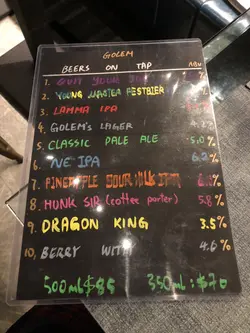 GOLEM
BEERS ON TAP ABV
1. QUIT YOUR %
2. YOUNG MASTER FESTBIER %
3. LAMMA IPA %
4. GOLEM'S LAGER %
5. CLASSIC PALE ALE 5.0%
6. NE IPA 6.2%
7. PINEAPPLE SOUR IPA %
8. HUNK SIR (coffee porter) 5.8%
9. DRAGON KING 3.5%
10. BERRY WITH 4.6%
500ml $85 350ml: $70